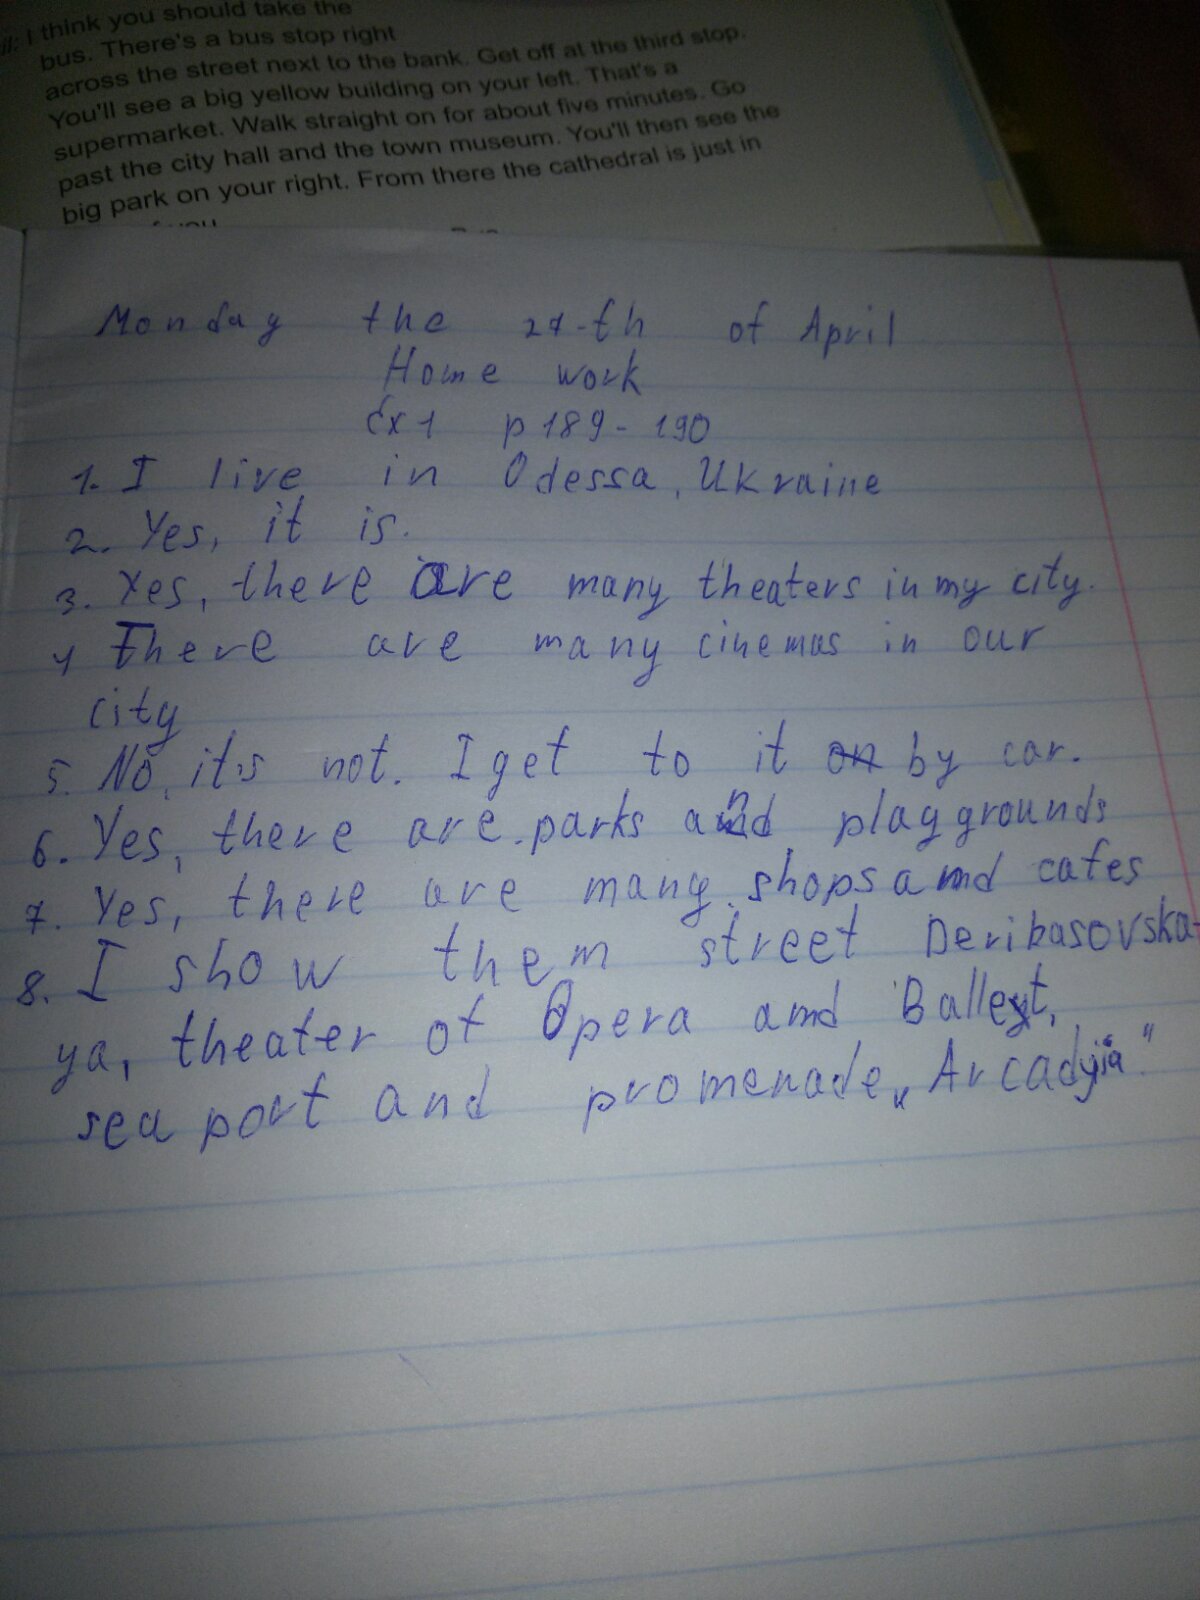 I think you should take the
bus. There's a bus stop right
across the street next to the bank. Get off at the third stop.
You'll see a big yellow building on your left. That's a
supermarket. Walk straight on for about five minutes. Go
past the city hall and the town museum. You'll then see the
big park on your right. From there the cathedral is just in
Monday the 27-th of April
Home work
Ex 1 p 189-190
1. I live in Odessa, Ukraine
2. Yes, it is.
3. Yes, there are many theaters in my city.
4 There are many cinemas in our
city
5. No, it's not. I get to it on by car.
6. Yes, there are parks and playgrounds
7. Yes, there are many shops amd cafes
8. I show them street Deribasovska-
ya, theater of Opera amd Ballet,
sea port and promenade „Arcadyia"